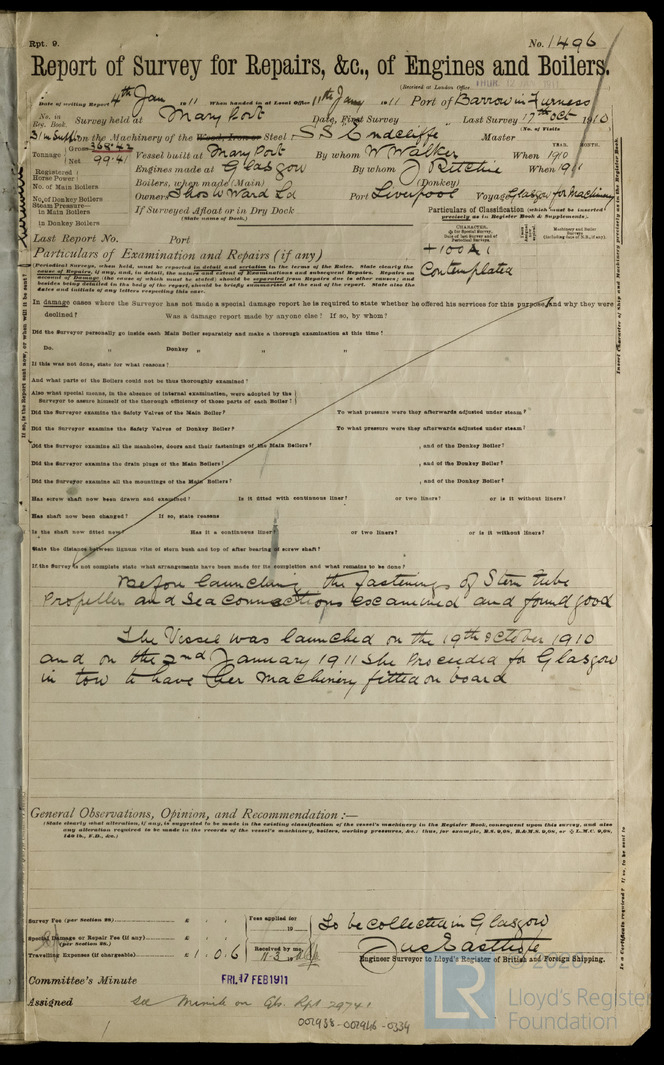 Rpt. 9.
No. 1496
Report of Survey for Repairs, &c., of Engines and Boilers.
(Received at London Office
Date of writing Report 4th Jan 1911 When handed in at Local Office 11th Jany 1911 Port of Barrow in Furness
No. in Reg. Book. Survey held at Mary Port Date, First Survey Last Survey 17th Oct 1910
(No. of Visits
31 in Suppt on the Machinery of the Wood, Iron or Steel SS Endcliffe Master
Tonnage Gross 368.42 Net 99.41 Vessel built at Mary Port By whom W Walker When 1910
YEAR. MONTH.
Registered Horse Power Engines made at Glasgow By whom J Ritchie When 1911
No. of Main Boilers Boilers, when made (Main) (Donkey)
No. of Donkey Boilers Owners Thos W Ward Ld Port Liverpool Voyage Glasgow for Machinery
Steam Pressure in Main Boilers If Surveyed Afloat or in Dry Dock
(State name of Dock.)
in Donkey Boilers
Particulars of Classification (which must be inserted precisely as in Register Book & Supplements).
Last Report No. Port
+100A1
Contemplated
Particulars of Examination and Repairs (if any)
(Periodical Surveys, when held, must be reported in detail and seriatim in the terms of the Rules. State clearly the
cause of Repairs, if any, and, in detail, the nature and extent of Examinations and subsequent Repairs. Repairs on
account of Damage (the cause of which must be stated) should be separated from Repairs due to other causes; and
besides being detailed in the body of the report, should be briefly summarized at the end of the report. State also the
dates and initials of any letters respecting this case.
In damage cases where the Surveyor has not made a special damage report he is required to state whether he offered his services for this purpose, and why they were
declined? Was a damage report made by anyone else? If so, by whom?
Did the Surveyor personally go inside each Main Boiler separately and make a thorough examination at this time?
Do. „ Donkey „ „ „
If this was not done, state for what reasons?
And what parts of the Boilers could not be thus thoroughly examined?
Also what special means, in the absence of internal examination, were adopted by the
Surveyor to assure himself of the thorough efficiency of those parts of each Boiler?
Did the Surveyor examine the Safety Valves of the Main Boiler? To what pressure were they afterwards adjusted under steam?
Did the Surveyor examine the Safety Valves of Donkey Boiler? To what pressure were they afterwards adjusted under steam?
Did the Surveyor examine all the manholes, doors and their fastenings of the Main Boilers? , and of the Donkey Boiler?
Did the Surveyor examine the drain plugs of the Main Boilers? , and of the Donkey Boiler?
Did the Surveyor examine all the mountings of the Main Boilers? , and of the Donkey Boiler?
Has screw shaft now been drawn and examined? Is it fitted with continuous liner? or two liners? or is it without liners?
Has shaft now been changed? If so, state reasons
Is the shaft now fitted new? Has it a continuous liner? or two liners? or is it without liners?
State the distance between lignum vitæ of stern bush and top of after bearing of screw shaft?
If the Survey is not complete state what arrangements have been made for its completion and what remains to be done?
Before launching the fastenings of Stern tube
Propeller and Sea Connections examined and found good
The Vessel was launched on the 19th October 1910
and on the 2nd January 1911 she proceeded for Glasgow
in tow to have her Machinery fitted on board
General Observations, Opinion, and Recommendation:—
(State clearly what alteration, if any, is suggested to be made in the existing classification of the vessel's machinery in the Register Book, consequent upon this survey, and also
any alteration required to be made in the records of the vessel's machinery, boilers, working pressures, &c.: thus, for example, B.S. 9,08, B.&M.S. 9,08, or L.M.C. 9,08,
140 lb., F.D., &c.)
Survey Fee (per Section 28) £ Fees applied for 19
To be collected in Glasgow
Special Damage or Repair Fee (if any) (per Section 28.) £
Travelling Expenses (if chargeable) £ 1.0.6 Received by me,
Engineer Surveyor to Lloyd's Register of British and Foreign Shipping.
Committee's Minute FRI. 17 FEB 1911
Assigned See Minute on Gls. Rpt 29741
002938-002946-0334
© 2020
LR
Lloyd's Register
Foundation